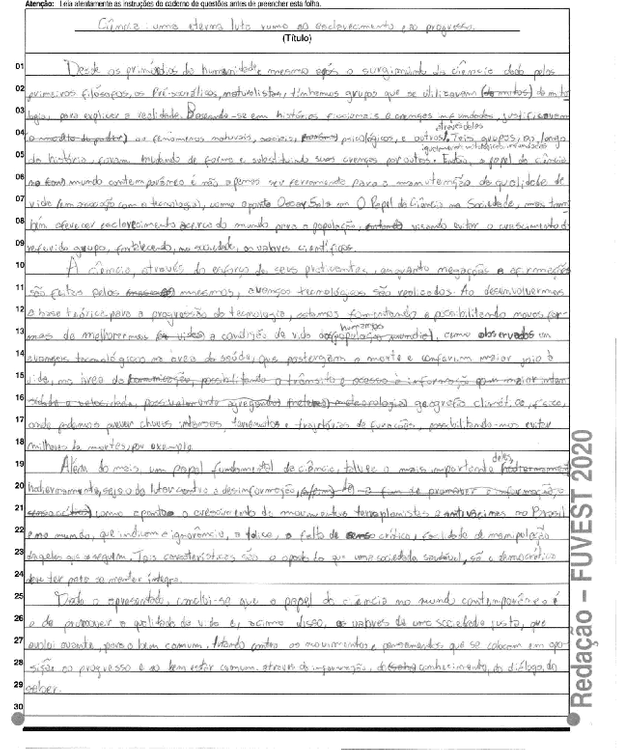 Atenção: Leia atentamente as instruções do caderno de questões antes de preencher esta folha.
Ciência: uma eterna luta rumo ao esclarecimento e ao progresso.
(Título)
01 Desde os primórdios da humanidade, mesmo após o surgimento da ciência dado pelos
02 primeiros filósofos, os Pré-socráticos, naturalistas, tínhamos grupos que se utilizavam de mito
03 logia, para explicar a realidade. Baseando-se em histórias ficcionais e crenças infundadas, justificavam
04 os fenômenos naturais, sociais, psicológicos, e outros através delas. Tais grupos, ao longo
05 da história, foram mudando de forma e substituindo suas crenças por outras. Então, o papel da ciência
igualmente mitológicas infundadas
06 no mundo contemporâneo é não apenas ser ferramenta para a manutenção da qualidade de
07 vida (em associação com a tecnologia), como aponta Oscar Sala em O Papel da Ciência na Sociedade, mas tam
08 bém oferecer esclarecimento acerca do mundo para a população, visando evitar o crescimento do
09 referido grupo, fortalecendo, na sociedade, os valores científicos.
10 A ciência, através do esforço de seus praticantes, enquanto negações e afirmações
11 são feitas pelos mesmos, avanços tecnológicos são realizados. Ao desenvolvermos
12 a base teórica para a progressão da tecnologia, estamos fomentando e possibilitando novas for
13 mas de melhorarmos a condição de vida humanos, como observados em
14 avanços tecnológicos na área da saúde, que postergam a morte e conferem maior
15 vida, na área da possibilitando o trânsito e acesso à informação com maior inten
16 sidade e velocidade, geografia climática, física,
17 onde podemos prever chuvas intensas, e trajetórias de furacões, possibilitando-nos evitar
18 milhares de mortes, por exemplo.
19 Além do mais, um papel fundamental da ciência, talvez o mais importante deles
20 seja o de lutar contra a desinformação
21 como aponta o crescimento de movimentos terraplanistas e antivacinas no Brasil
22 e no mundo, que induzem a ignorância, a falta de senso crítico, facilidade de manipulação
23 daqueles que a seguem. Tais características são o oposto do que uma sociedade saudável, sã e democrática
24 deve ter para se manter íntegra.
25 Dado o apresentado, conclui-se que o papel da ciência no mundo contemporâneo é
26 o de promover a qualidade de vida e, acima disso, os valores de uma sociedade justa, que
27 evolui avante, para o bem comum. lutando contra os movimentos e pensamentos que se colocam em opo
28 sição ao progresso e ao bem estar comum. através da informação, do conhecimento, do diálogo, do
29 saber.
30
Redação – FUVEST 2020